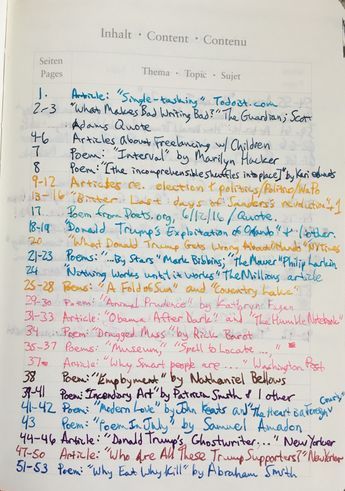 Inhalt · Content · Contenu
Seiten
Pages
Thema · Topic · Sujet
1. Article: "Single-tasking" Todoist.com
2-3 "What Makes Bad Writing Bad?" The Guardian; Scott
Adams Quote
4-6 Articles About Freelancing w/ Children
7 Poem: "Interval" by Marilyn Hacker
8 Poem: "[the incomprehensible shuffles into place]" by Kari
9-12 Articles re. election + politics/Politico/WaPo
13-16 "Bitter Last days of Sanders's revolution" +1
17 Poem from Poets.org, 6/12/16 / Quote.
18-19 "Donald Trump's Exploitation of Orlando" + 1 other.
20 "What Donald Trump Gets Wrong About Orlando" NYTimes
21-23 Poems: "-By Stars" Mark Bibbins; "The Mower" Philip Larkin
24 "Nothing works until it works" The Millions article
25-28 Poems: "A Fold of Sun" and "Coventry Lake"
29-30 Poem: "Annual Prudence" by Kathryn
31-33 Article: "Obama After Dark" and "The Humble Notebook"
34 Poem: "Dragged Mass" by Rick Barot
35-37 Poems: "Museum," "Spell to Locate ...,"
37 Article: "Why Smart people are ...." Washington Post
38 Poem: "Employment" by Nathaniel Bellows
39-41 Poem: Incendiary Art by Patricia Smith & 1 other
41-42 Poem: "Modern Love" by John Keats and "The Heart is a Foreign Country"
43 Poem: "Poem In July" by Samuel Amadon
44-46 Article: "Donald Trump's Ghostwriter..." New Yorker
47-50 Article: "Who Are All These Trump Supporters?" New Yorker
51-53 Poem: "Why Eat Why Kill" by Abraham Smith